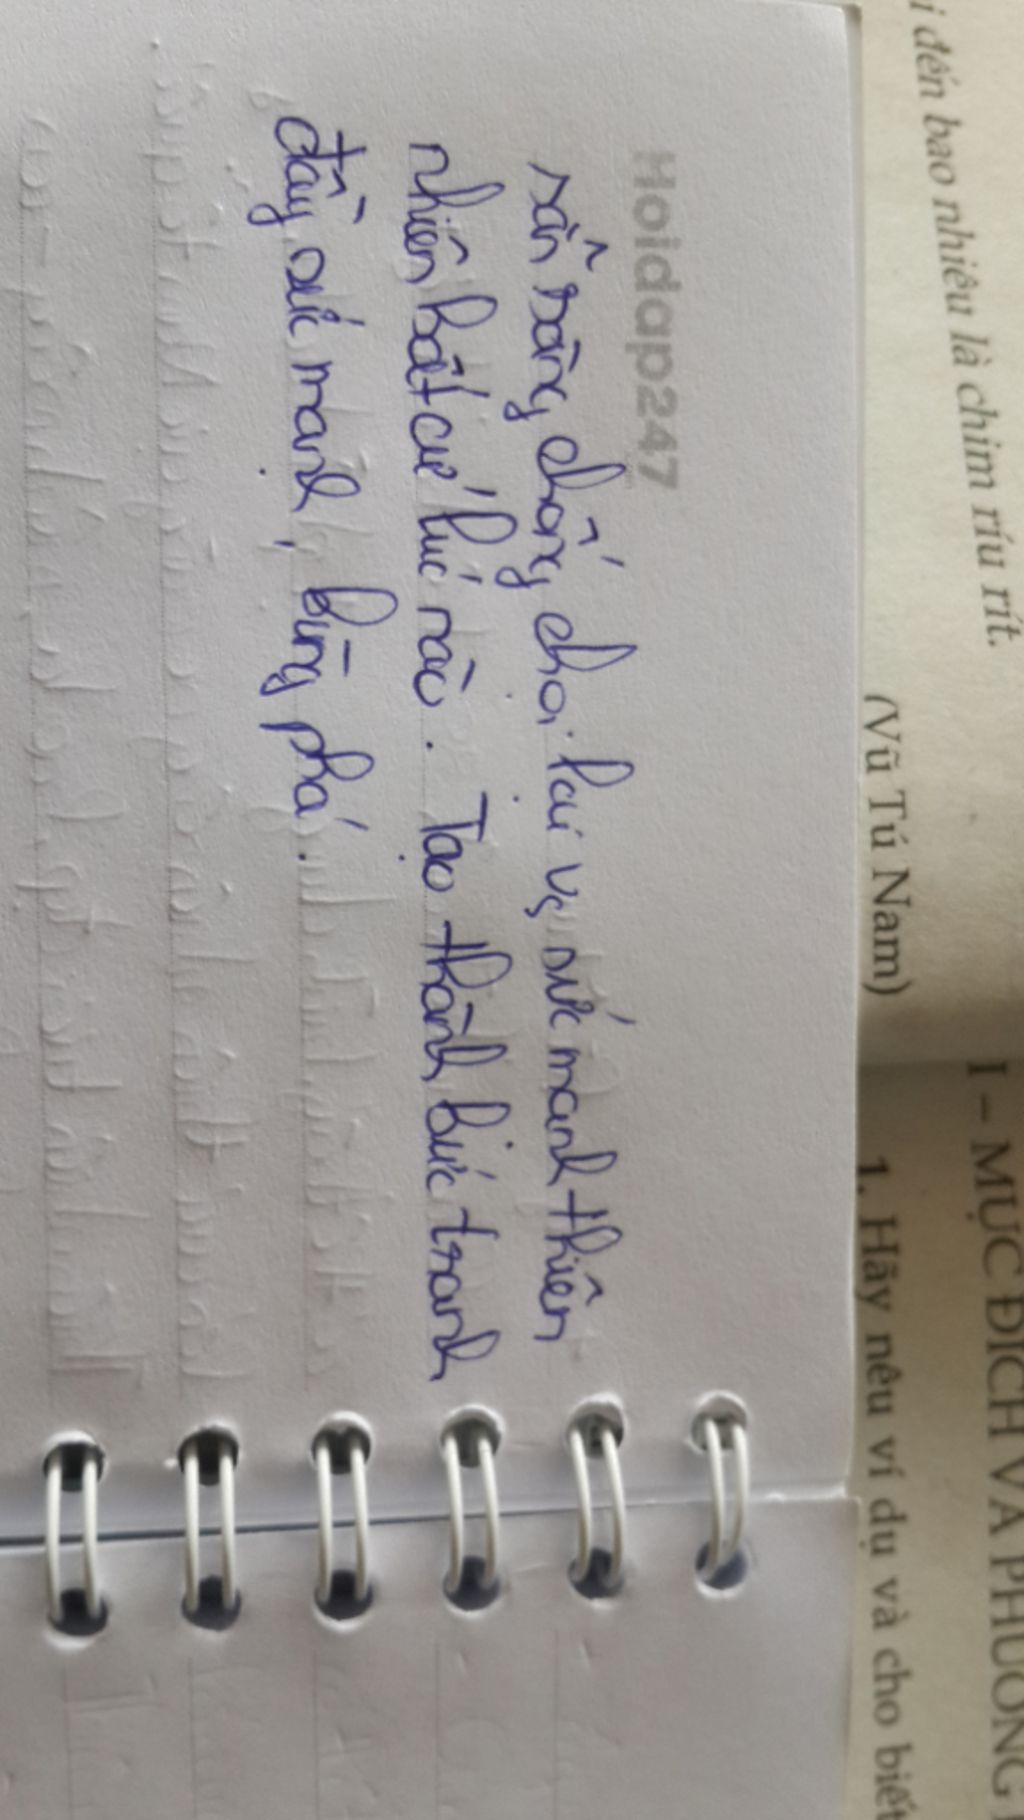 i đến bao nhiêu là chim ríu rít.
(Vũ Tú Nam)
I – MỤC ĐÍCH VÀ PHƯƠNG
1. Hãy nêu ví dụ và cho biết
Hoidap247
sẵn sàng chống chọi lại vs sức mạnh thiên
nhiên bất cứ lúc nào. Tạo thành bức tranh
đầy sức mạnh, bùng phá.